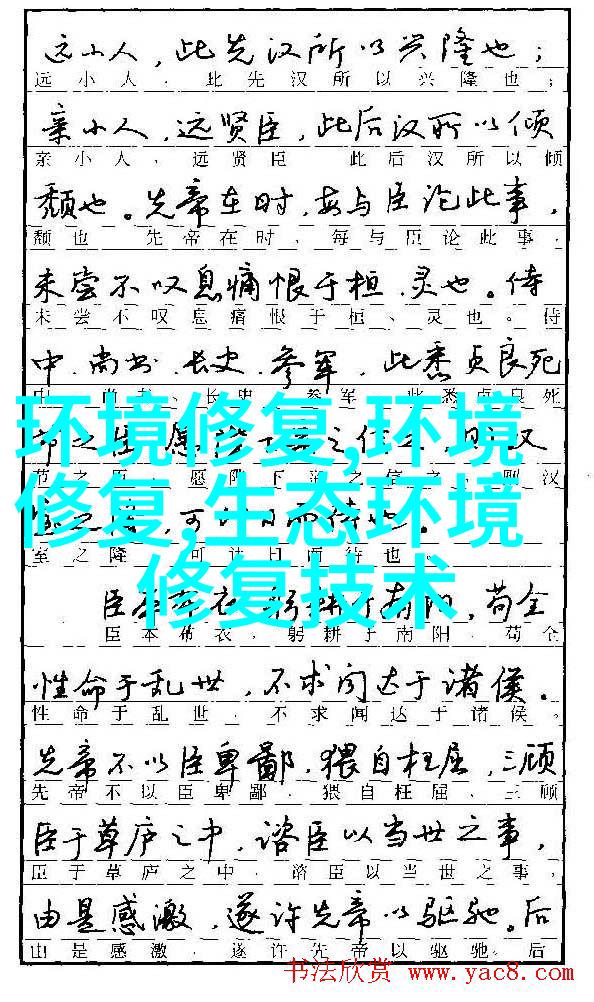 远小人，此先汉所以兴隆也；
远小人，此先汉所以兴隆也；
亲小人，远贤臣，此后汉所以倾
亲小人，远贤臣 此后汉所以倾
颓也。先帝在时，每与臣论此事，
颓也 先帝在时，每与臣论此事，
未尝不叹息痛恨于桓、灵也。侍
未尝不叹息痛恨于桓、灵也。侍
中、尚书、长史、参军，此悉贞良死
中 尚书、长史 参军 此悉贞良死
环境修复,环境
节之臣 愿陛下 之信之 则汉
节之臣 愿陛下 之信之 则汉
修复,生态环境
室之隆，可计日而待也。
室之隆 可计日而待也。
修复技术
臣本布衣，躬耕于南阳，苟全
臣本布衣，躬耕于南阳 苟全
性命于乱世，不求闻达于诸侯。
性命于乱世，不求闻达于诸侯。
先帝不以臣卑鄙，猥自枉屈，三顾
先帝不以臣卑鄙，猥自枉屈、三顾
臣于草庐之中，谘臣以当世之事，
臣于草庐之中，谘臣以当世之事，
由是感激，遂许先帝以驱驰。后
由是感激，遂许先帝以驱驰。后
书法欣赏 www.yac8.com